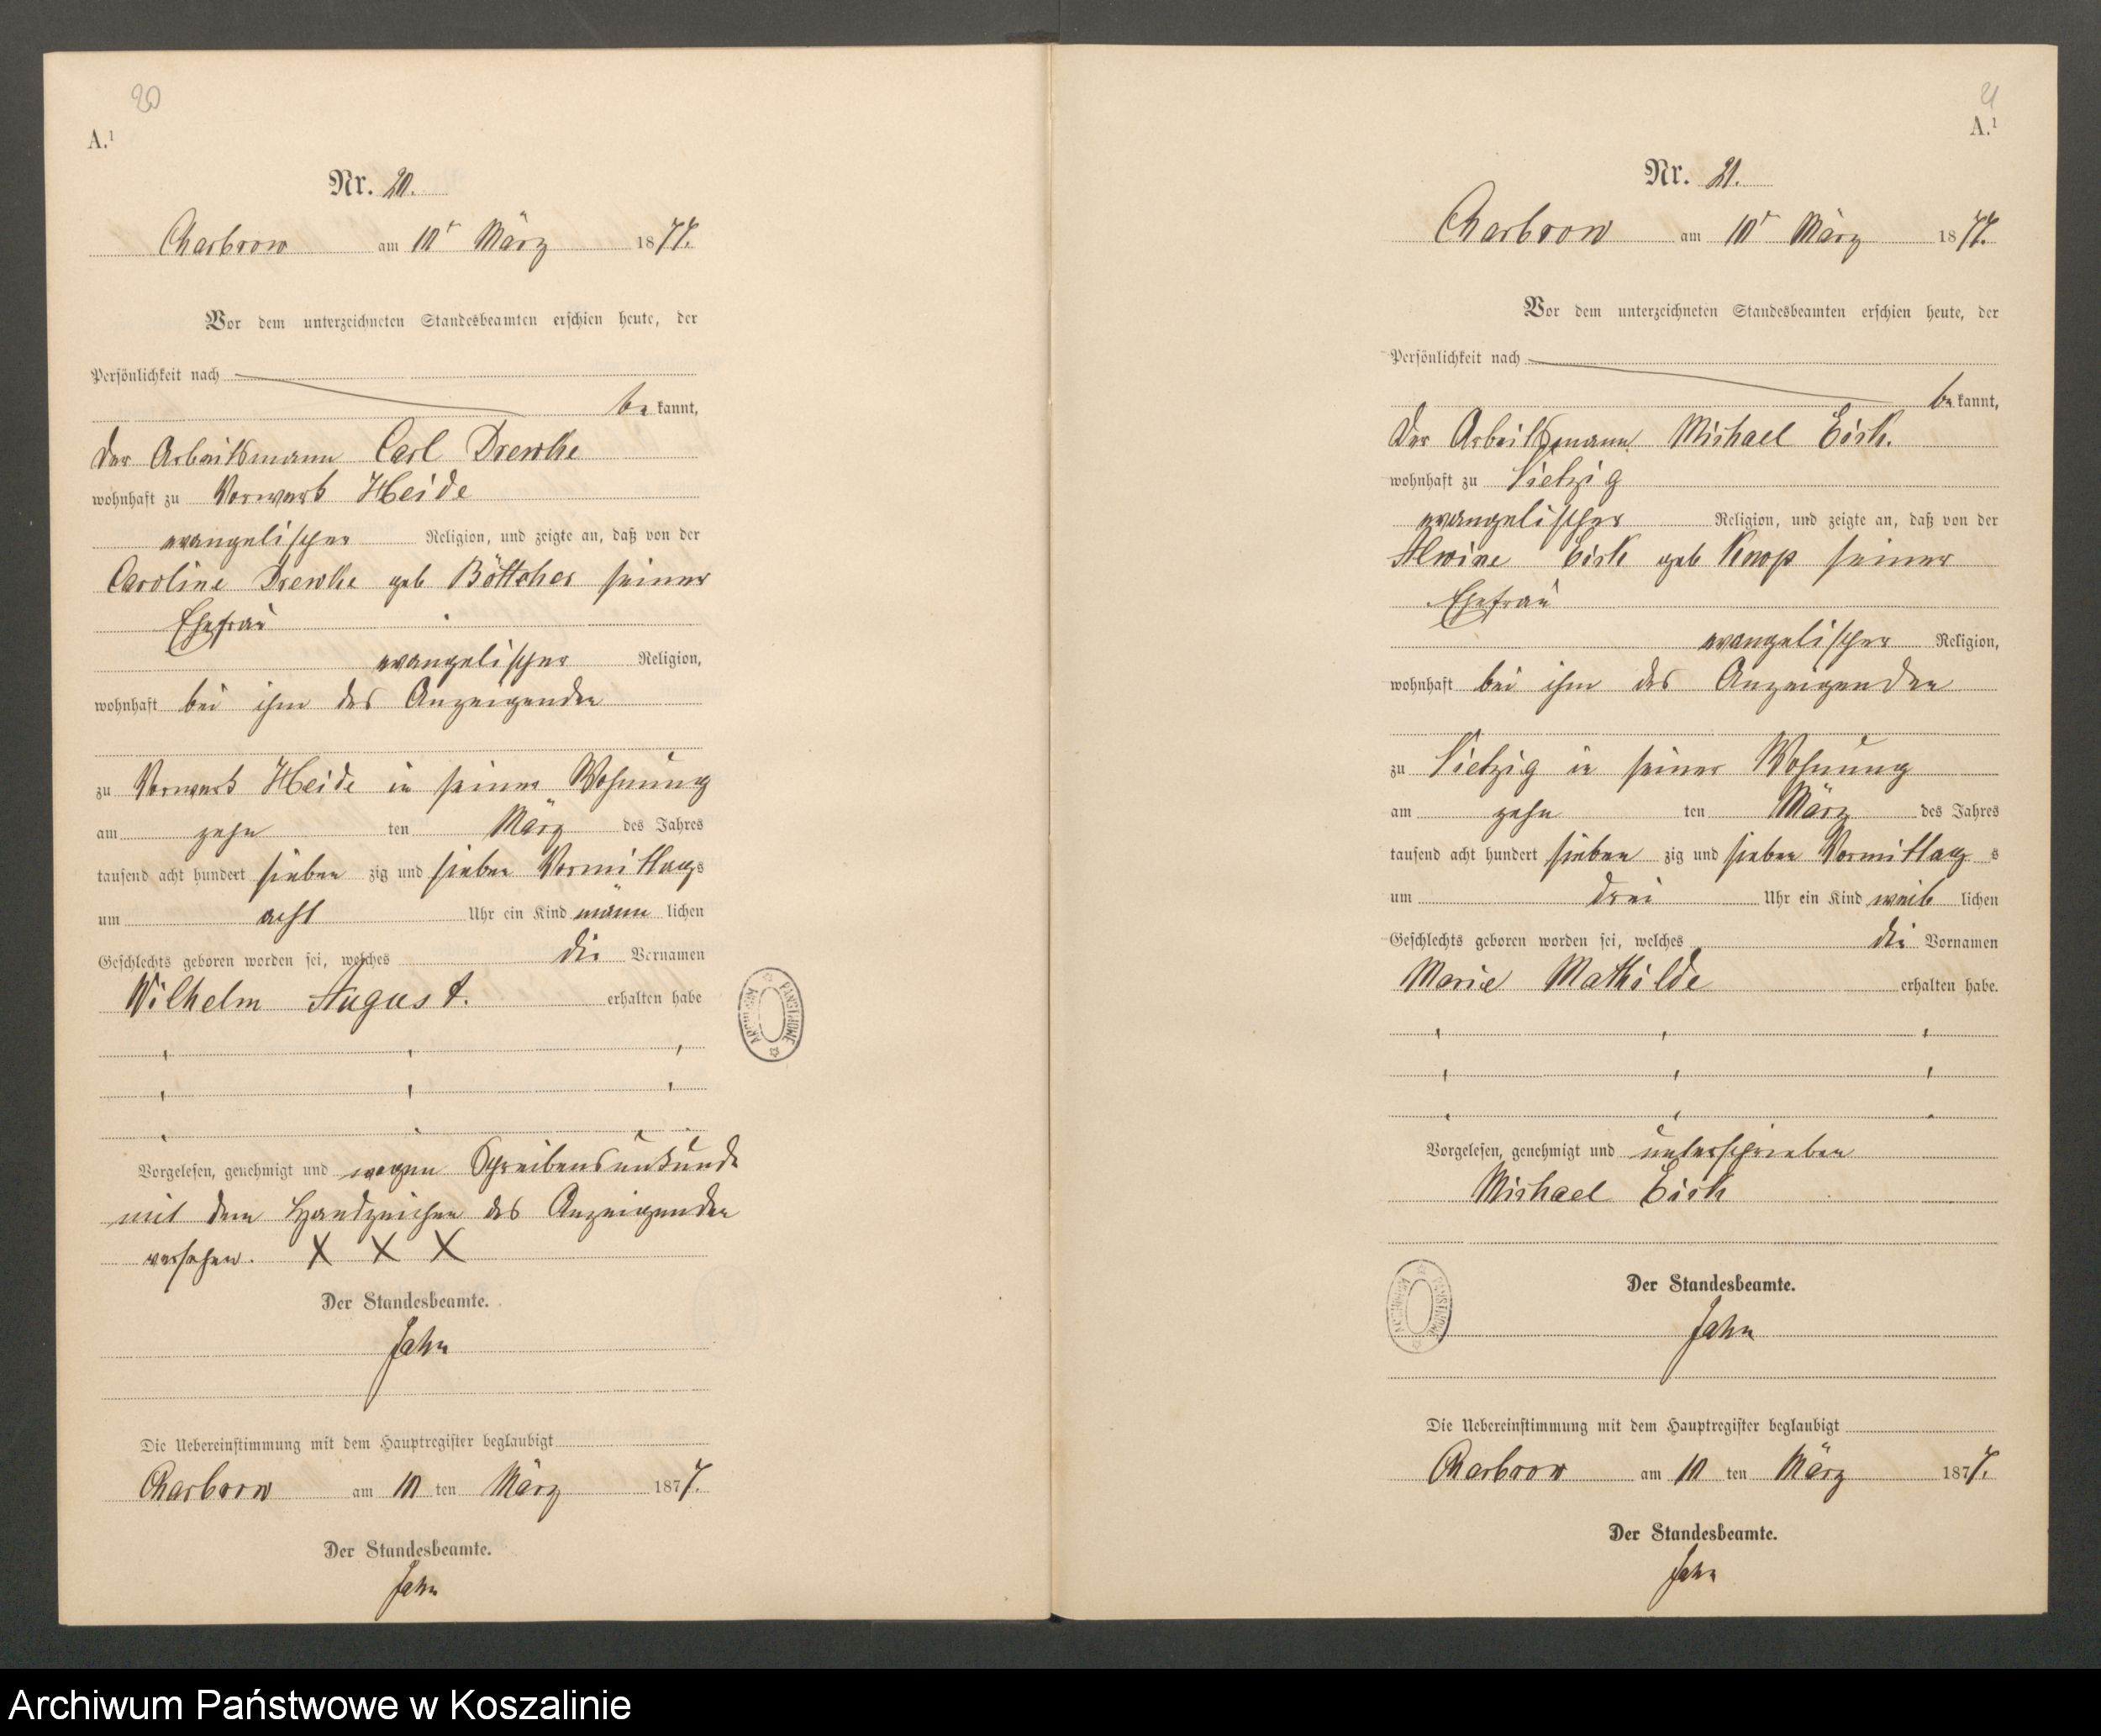 20
A.¹
Nr. 20.
Charbrow am 10ᵗ März 1877.
Vor dem unterzeichneten Standesbeamten erschien heute, der
Persönlichkeit nach
be kannt,
der Arbeitsmann Carl Drewke
wohnhaft zu Vorwerk Heide
evangelischer Religion, und zeigte an, daß von der
Caroline Drewke geb Böttcher seiner
Ehefrau
evangelischer Religion,
wohnhaft bei ihm des Anzeigenden
zu Vorwerk Heide in seiner Wohnung
am zehn ten März des Jahres
tausend acht hundert sieben zig und sieben Vormittags
um acht Uhr ein Kind männ lichen
Geschlechts geboren worden sei, welches die Vornamen
Wilhelm August. erhalten habe
Vorgelesen, genehmigt und wegen Schreibensunkunde
mit dem Handzeichen des Anzeigenden
versehen. X X X
Der Standesbeamte.
Jahn
Die Uebereinstimmung mit dem Hauptregister beglaubigt
Charbrow am 10 ten März 1877.
Der Standesbeamte.
Jahn
ARCHIWUM PAŃSTWOWE
21
A.¹
Nr. 21.
Charbrow am 10ᵗ März 1877.
Vor dem unterzeichneten Standesbeamten erschien heute, der
Persönlichkeit nach
be kannt,
der Arbeitsmann Michael Eick.
wohnhaft zu Vietzig
evangelischer Religion, und zeigte an, daß von der
Alwine Eick geb Knop seiner
Ehefrau
evangelischer Religion,
wohnhaft bei ihm des Anzeigenden
zu Vietzig in seiner Wohnung
am zehn ten März des Jahres
tausend acht hundert sieben zig und sieben Vormittag s
um drei Uhr ein Kind weib lichen
Geschlechts geboren worden sei, welches die Vornamen
Marie Mathilde erhalten habe.
Vorgelesen, genehmigt und unterschrieben
Michael Eick
Der Standesbeamte.
Jahn
Die Uebereinstimmung mit dem Hauptregister beglaubigt
Charbrow am 10 ten März 1877.
Der Standesbeamte.
Jahn
ARCHIWUM PAŃSTWOWE
Archiwum Państwowe w Koszalinie